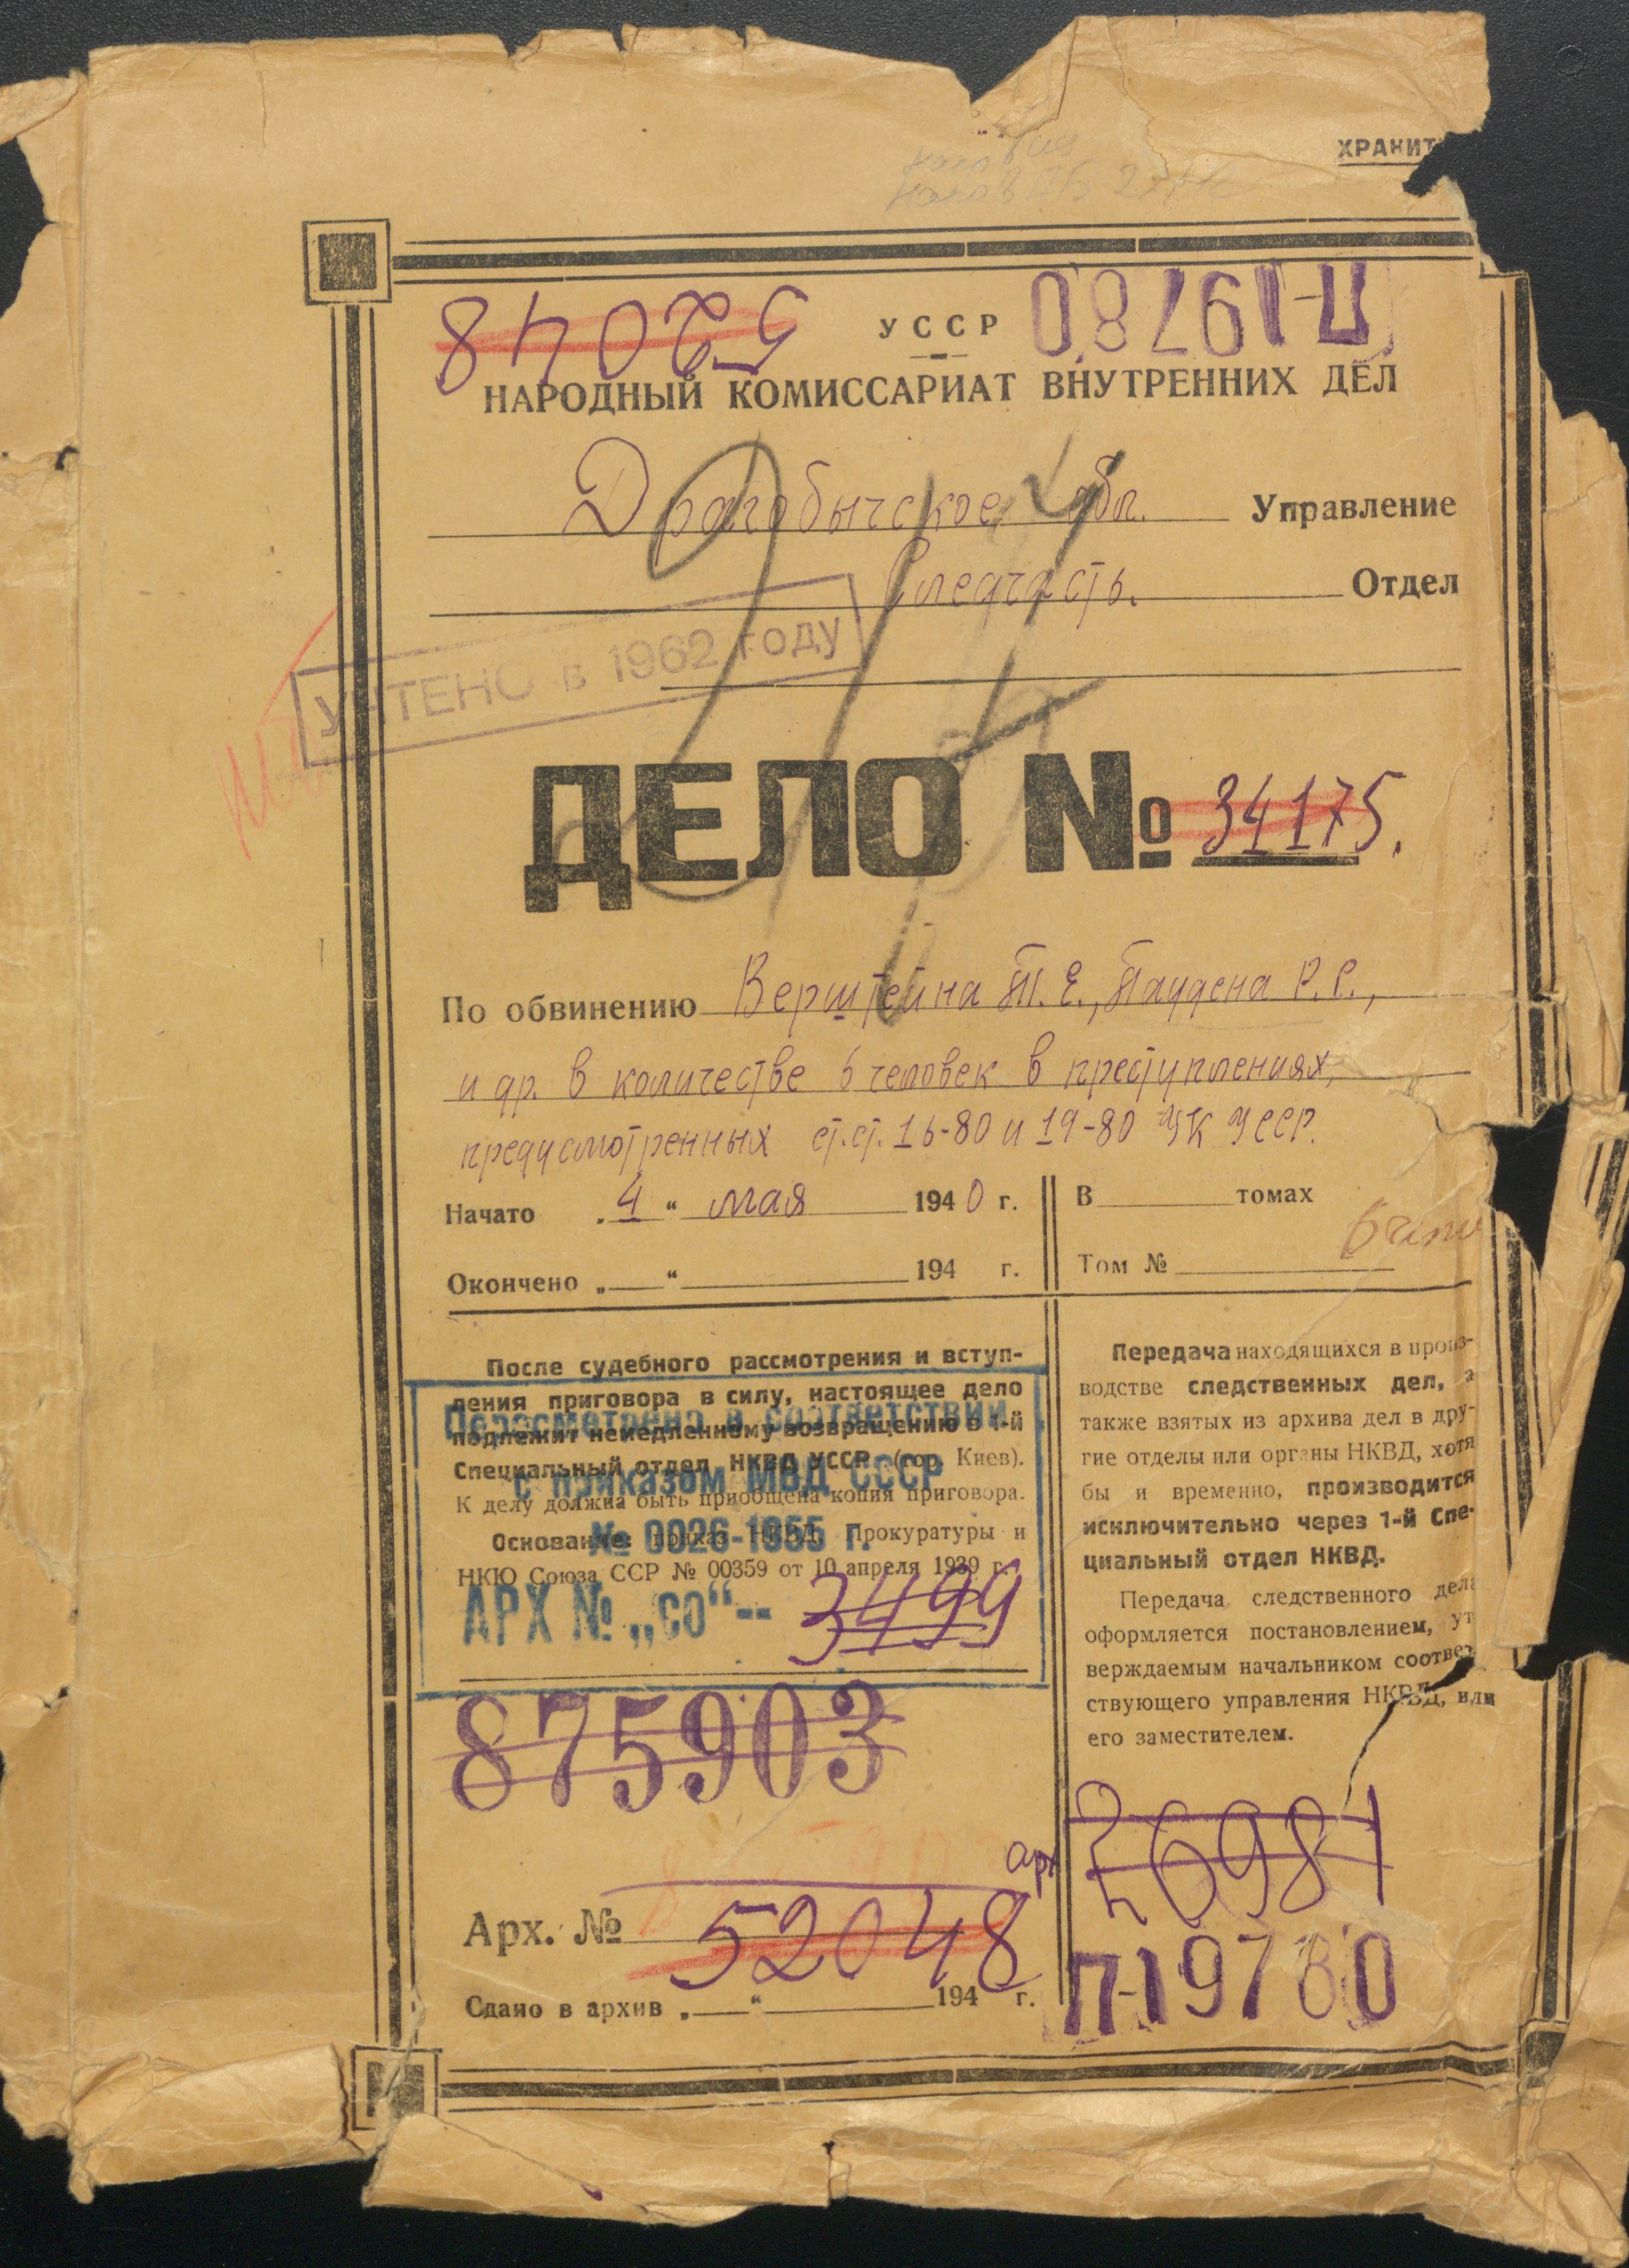 ХРАНИТ
52048
УССР
П-19780
НАРОДНЫЙ КОМИССАРИАТ ВНУТРЕННИХ ДЕЛ
Драгобычское обл. Управление
Следчасть. Отдел
УЧТЕНО в 1962 году
ДЕЛО № 34175.
По обвинению Верштейна Т. Е., Таудена Р. С.,
и др. в количестве 6 человек в преступлениях,
предусмотренных ст.ст. 16-80 и 19-80 УК УССР.
Начато „4“ мая 1940 г.
В томах
Окончено „ “ 194 г.
Том №
После судебного рассмотрения и вступ-
ления приговора в силу, настоящее дело
подлежит немедленному возвращению в 1-й
Специальный отдел НКВД УССР (гор. Киев).
К делу должна быть приобщена копия приговора.
Основание: приказ НКВД, Прокуратуры и
НКЮ Союза ССР № 00359 от 10 апреля 1939 г.
Пересмотрено в соответствии
с приказом МВД СССР
№ 0026-1955 г.
АРХ № „со“-- 3499
875903
Арх. № 52048
Сдано в архив „ “ 194 г.
Передача находящихся в произ-
водстве следственных дел, а
также взятых из архива дел в дру-
гие отделы или органы НКВД, хотя
бы и временно, производится
исключительно через 1-й Спе-
циальный отдел НКВД.
Передача следственного дела
оформляется постановлением, ут
верждаемым начальником соответ
ствующего управления НКВД, или
его заместителем.
арх
П-19780